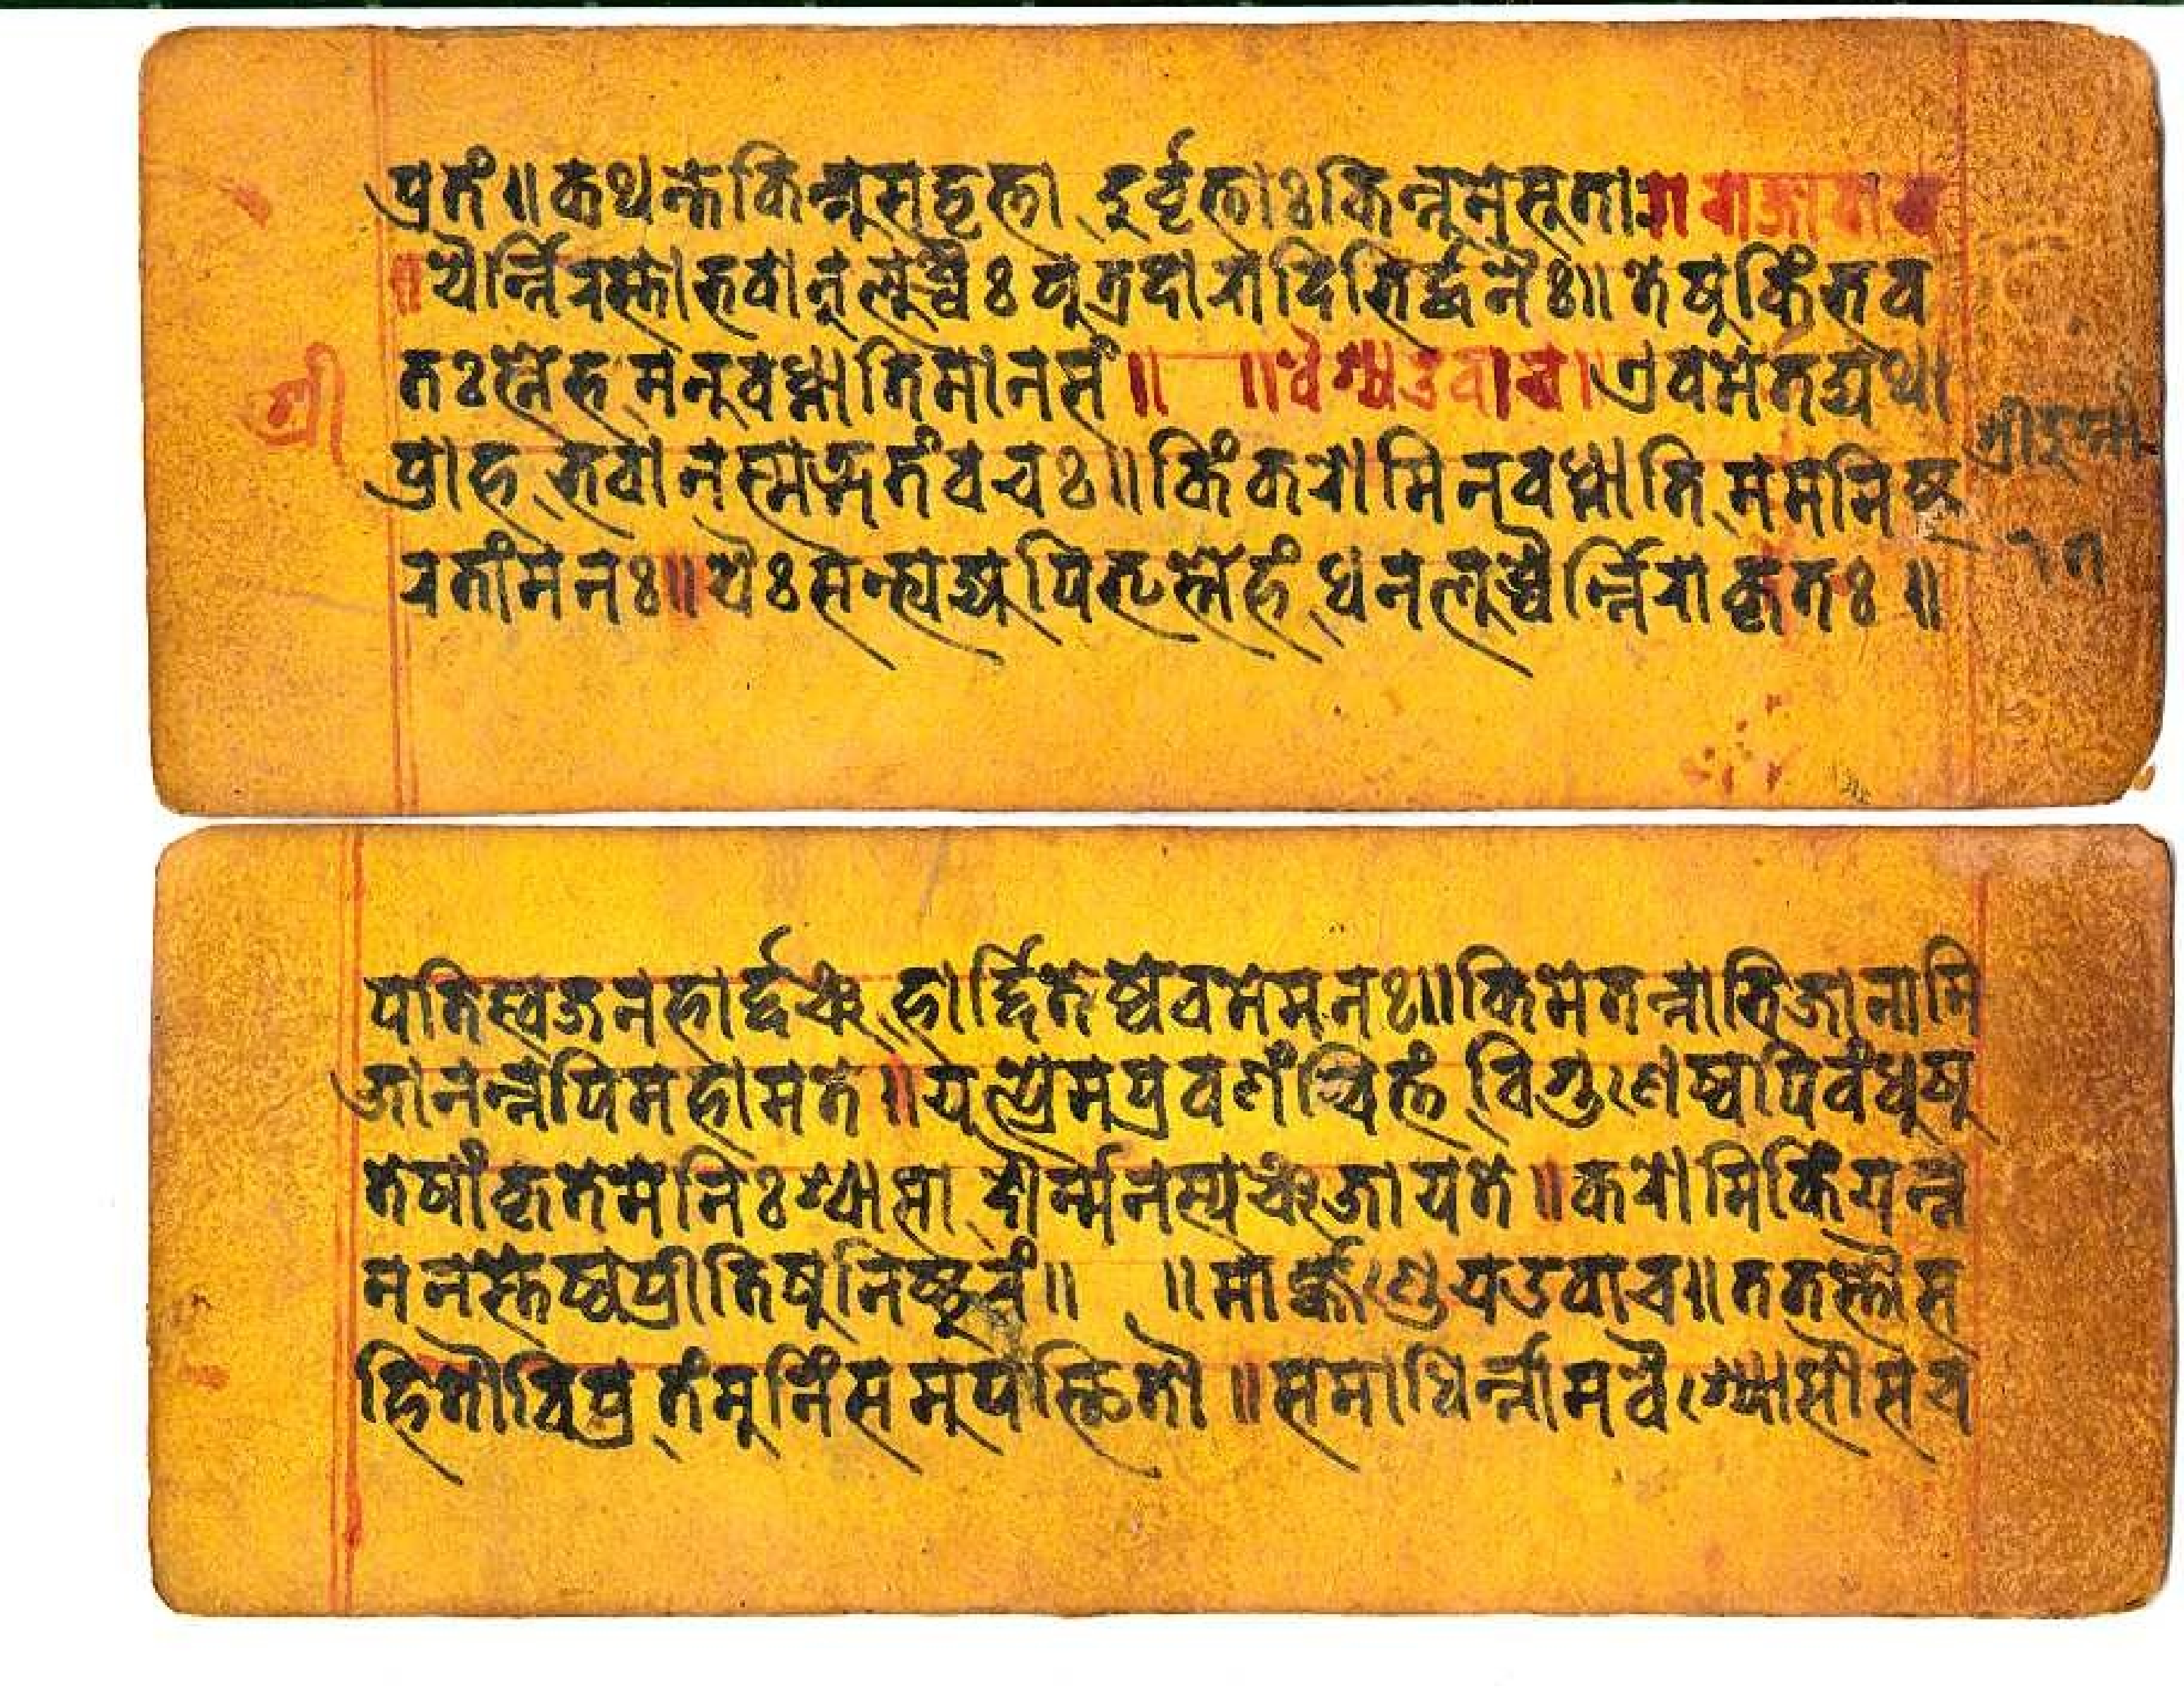 प्रतं॥कथन्तकिन्नुसद्वृत्ता दुर्वृत्ताःकिन्नुमेसुताः॥राजोवाच
॥यैर्न्निरस्तोभवांल्लुब्धैःपुत्रदारादिभिर्द्धनैः॥तेषुकिंभव
तःस्नेहमनुबध्नातिमानसं॥ ॥वैश्यउवाच॥एवमेतद्यथा
प्राहभवानस्मद्गतंवचः॥किंकरोमिनबध्नातिममनिष्ठु
रतांमनः॥यैःसन्त्यज्यपितृस्नेहंधनलुब्धैर्न्निराकृतः॥
श्री
श्रीदुर्गा
१७
पतिस्वजनहार्द्दञ्चहार्द्दितेष्वेवमेमनः॥किमेतन्नाभिजानामि
जानन्नपिमहामते॥यत्प्रेमप्रवणंच्चित्तंविगुणेष्वपिबंधुषु
तेषांकृतेमेनिःश्वासोदौर्म्मनस्यञ्चजायते॥करोमिकिंयन्न
मनस्तेष्वप्रीतिषुनिष्ठुरं॥ ॥मार्क्कण्डेयउवाच॥ततस्तौस
हितौविप्रतंमुनिंसमुपस्थितौ॥समाधिर्न्नामवैश्योसौसच